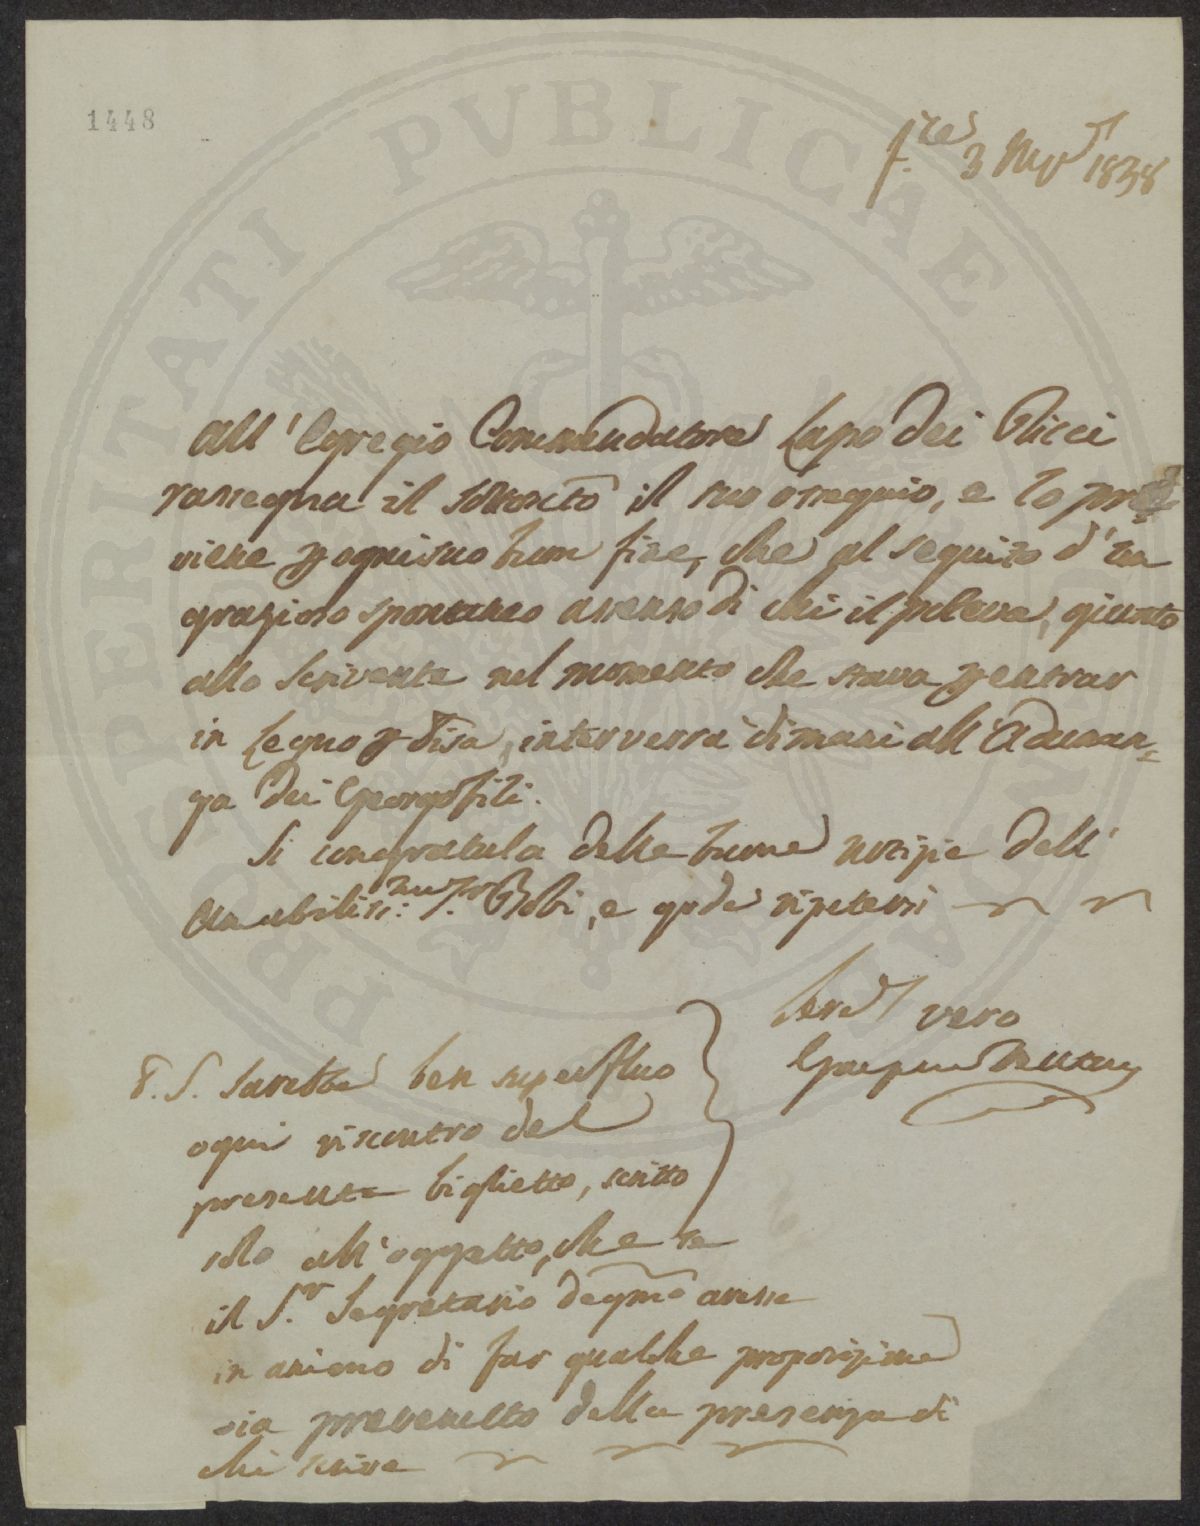 1448
F.ze 3 Mag 1838
All'Egregio Commendatore Lapo dei Ricci
rassegna il sottoscrto il suo ossequio, e lo pre=
viene p ogni suo buon fine, che al seguito d'un
grazioso spontaneo assenso di chi il poteva, giunto
allo scrivente nel momento che stava p entrar
in Legno p Pisa, interverrà dimani all'Adunan=
za dei Georgofili.
Si congratula delle buone notizie dell'
Amabiliss: Bobi, e gode ripetersi
Serv vero
P.S. Sarebbe ben superfluo
ogni riscontro del
presente biglietto, scritto
solo all'oggetto, che se
il S.r Segretario degmo avesse
in animo di far qualche proposizione
sia prevenuto della presenza di
chi scrive
PROSPERITATI PVBLICAE